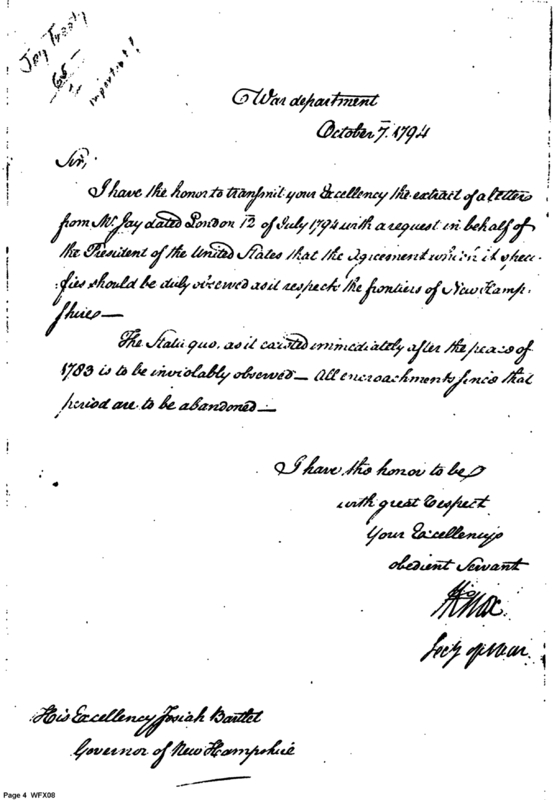 Jay Treaty
important!
War department
October 7. 1794
Sir,
I have the honor to transmit your Excellency the extract of a letter
from Mr. Jay dated London 12 of July 1794 with a request in behalf of
the President of the United States that the Agreement which it speci-
fies should be duly observed as it respects the frontiers of New Hamp-
shire —
The Statu quo, as it existed immediately after the peace of
1783 is to be inviolably observed — All encroachments since that
period are to be abandoned —
I have the honor to be
with great respect
Your Excellency's
obedient Servant
HKnox
Secy of War
His Excellency Josiah Bartlet
Governor of New Hampshire
Page 4 WFX08